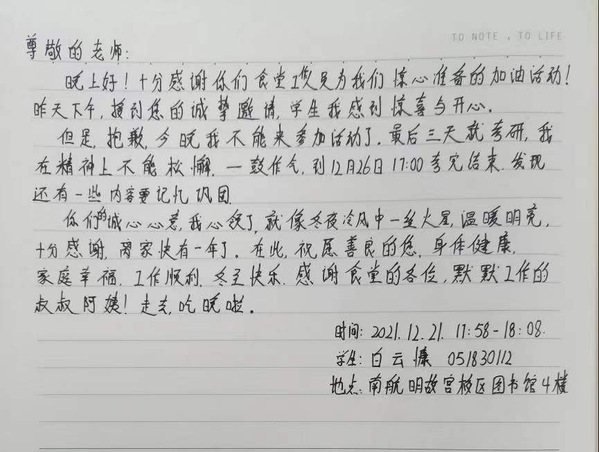 TO NOTE , TO LIFE
尊敬的老师:
晚上好!十分感谢你们食堂工作人员为我们惊心准备的加油活动!
昨天下午,接到您的诚挚邀请,学生我感到惊喜与开心。
但是,抱歉,今晚我不能来参加活动了。最后三天就考研,我
在精神上不能松懈.一鼓作气,到12月26日17:00考完结束.发现
还有一些内容要记忆巩固.
你们的诚心心意,我心领了.就像冬夜冷风中一丝火星,温暖明亮,
十分感谢,离家快有一年了.在此,祝愿善良的您,身体健康,
家庭幸福.工作顺利.冬至快乐.感谢食堂的各位,默默工作的
叔叔阿姨!走去,吃晚啦。
时间:2021.12.21.17:58-18:08.
学生:白云 051830112
地点:南航明故宫校区图书馆4楼